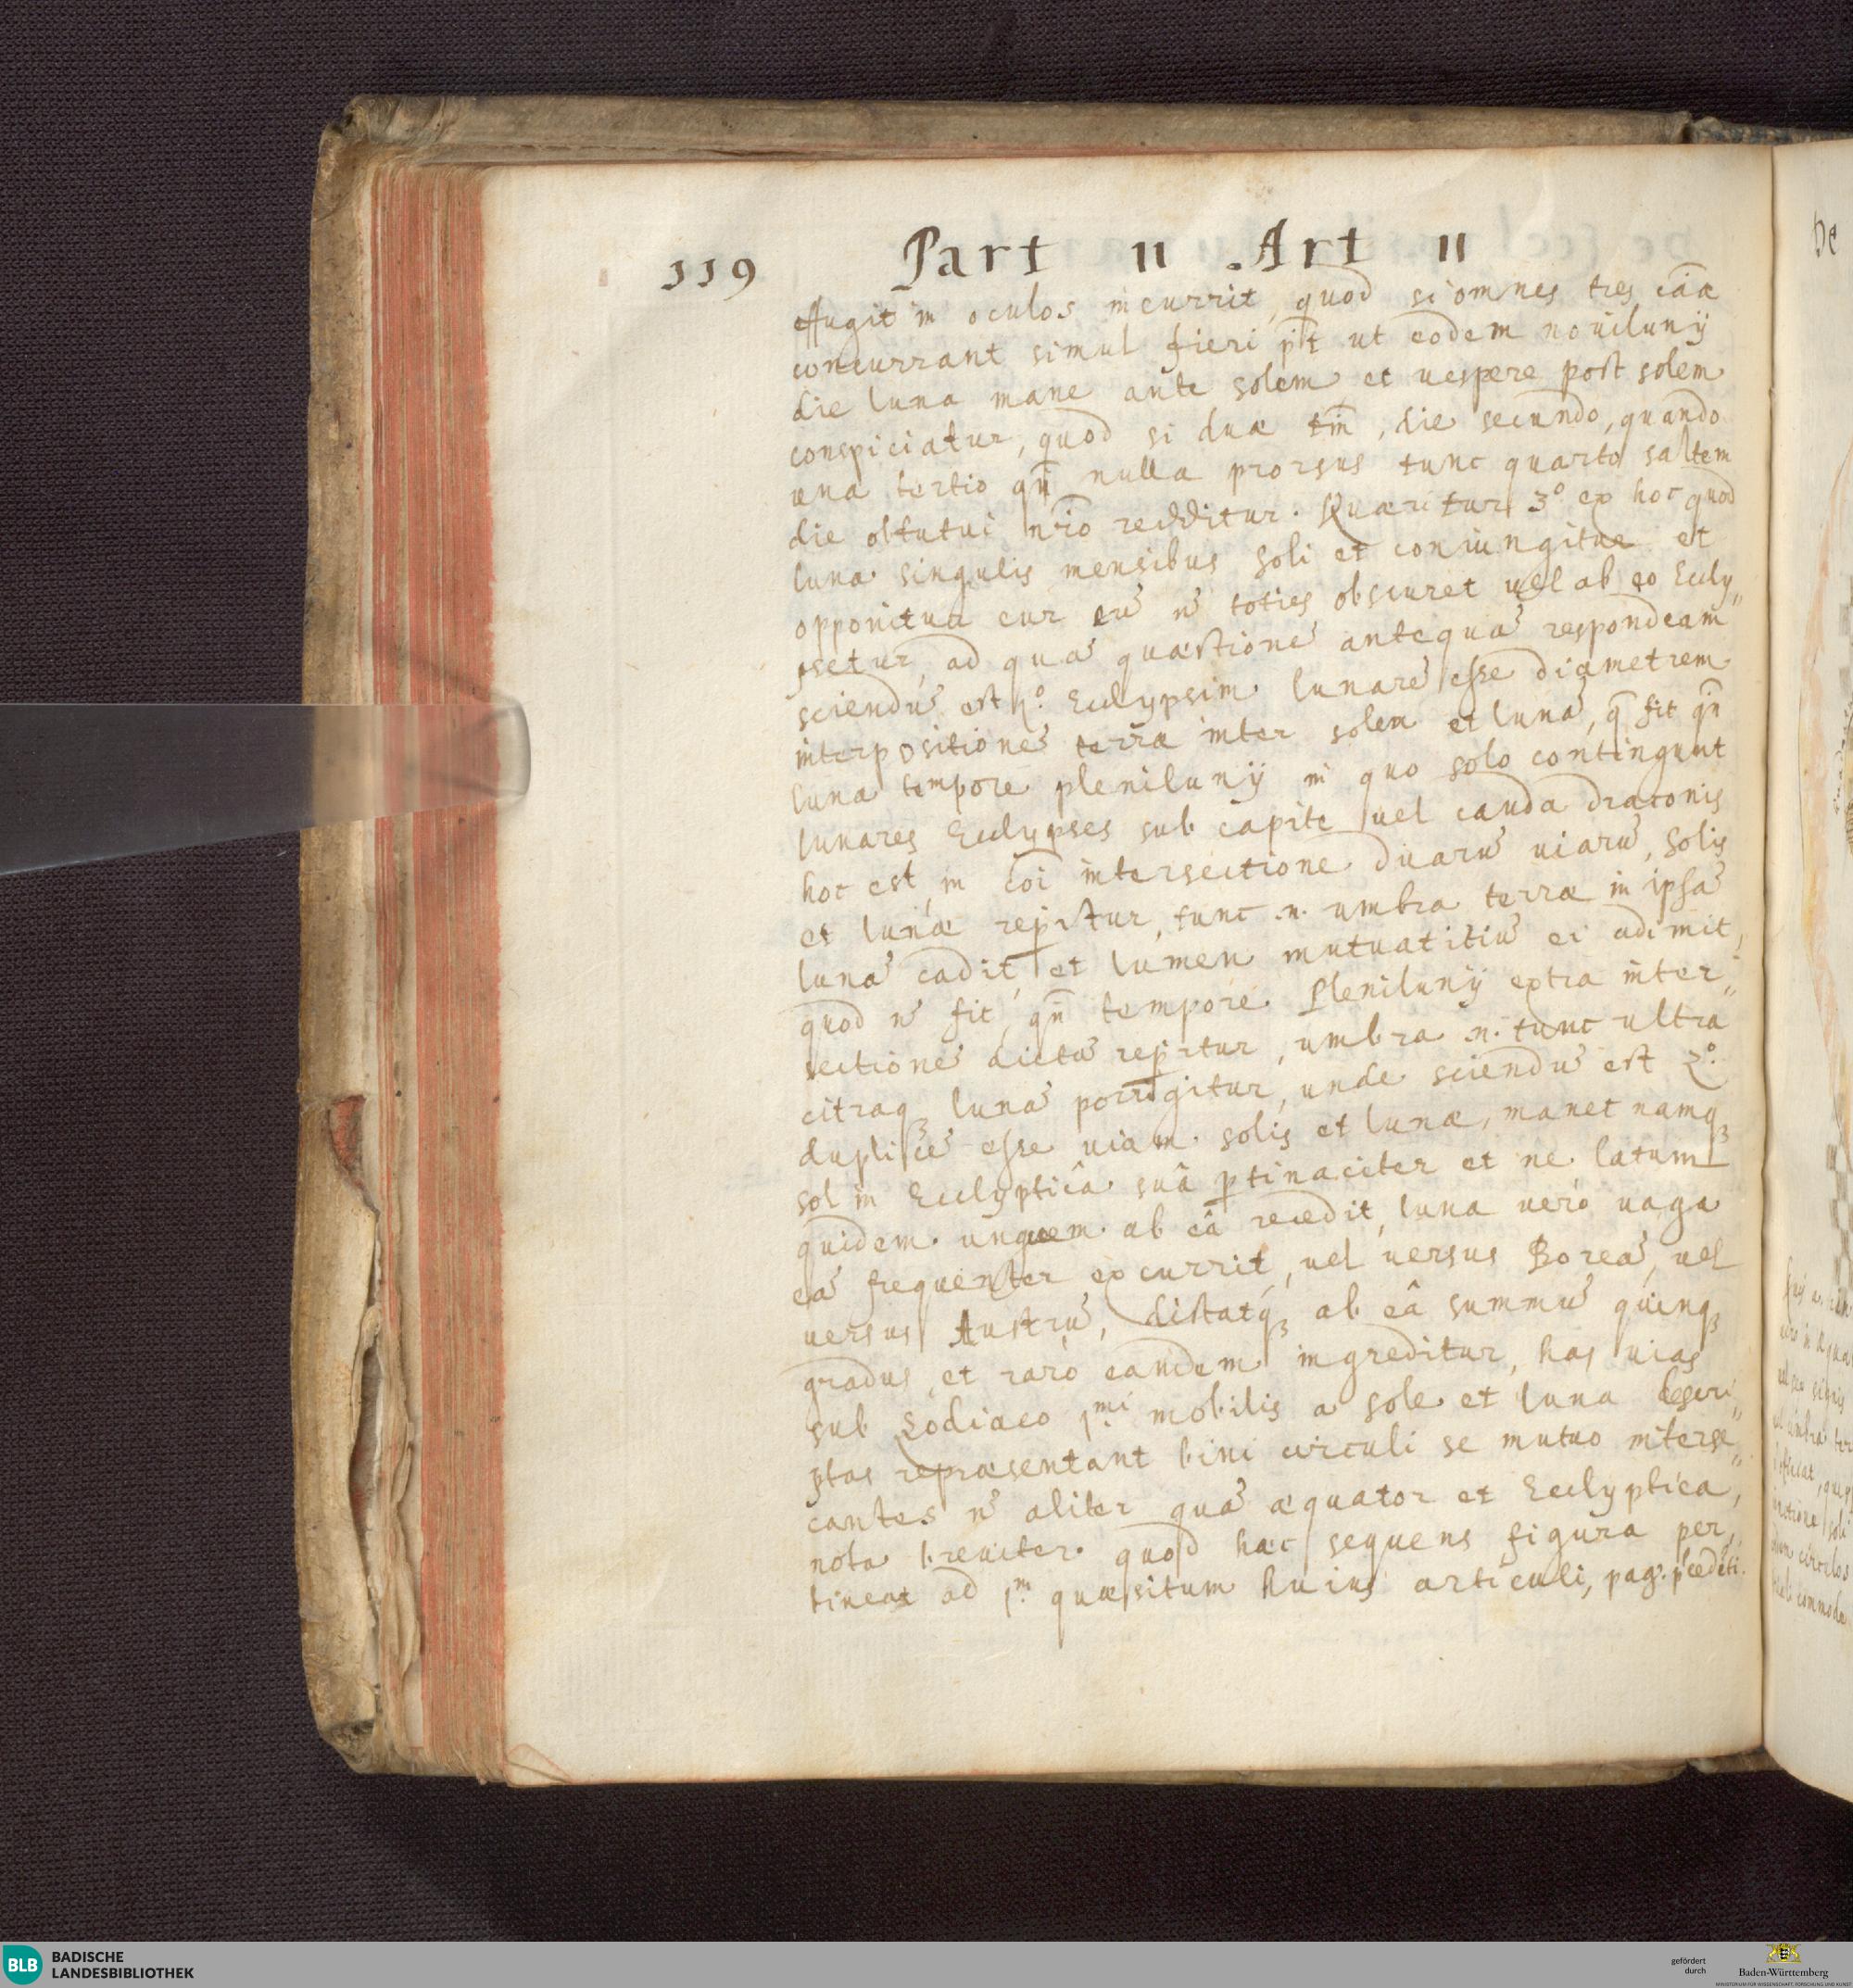 119 Part II Art II
effugit in oculos incurrit, quod si omnes tres cāæ
concurrant simul fieri pt̄ ut eodem noviluny
die luna mane ante solem et uespere post solem
conspiciatur, quod si duæ tm̄, die secundo, quando
una tertio qn̄ nulla prorsus tunc quarto saltem
die obtutui nr̄o redditur. Quæritur 3º ex hoc quod
luna singulis mensibus soli et coniungitur et
opponitur cur eū nō toties obscuret uel ab eo Ecly„
psetur, ad quā quæstionē antequā respondeam
sciendū est 1º. Eclypsim lunarē esse diametrem
interpositionē terræ inter solem et lunā, q̄ fit qn̄
luna tempore pleniluny in quo solo contingunt
lunares Eclypses sub capite uel cauda draconis
hoc est, in cōi intersectione duarū uiarū, solis
et lunæ repitur, tunc .n. umbra terræ in ipsā
lunā cadit, et lumen mutuatitiū ei adimit,
quod nō fit, qn̄ tempore Pleniluny extra inter„
sectionē dictā repitur, umbra .n. tunc ultra
citraq3 lunā porrigitur, unde sciendū est 2º.
duplicē esse uiam solis et lunæ, manet namq3
sol in Eclypticâ suâ ptinaciter et ne latum
quidem unguem ab eâ recedit, luna uero uaga
eā frequenter excurrit, uel uersus Boreā, uel
uersus Austrū, distatq3 ab eâ summū quinq3
gradus, et raro eandem ingreditur, has uias
sub Zodiaco 1mi mobilis a sole et luna descri„
ptas repræsentant bini circuli se mutuo interse„
cantes nō aliter quā æquator et Eclyptica,
nota breuiter quod hæc sequens figura per„
tineat ad 1m quæsitum huius articuli, pag. pcedēti.
De
BLB BADISCHE
LANDESBIBLIOTHEK
gefördert
durch
Baden-Württemberg
MINISTERIUM FÜR WISSENSCHAFT, FORSCHUNG UND KUNST